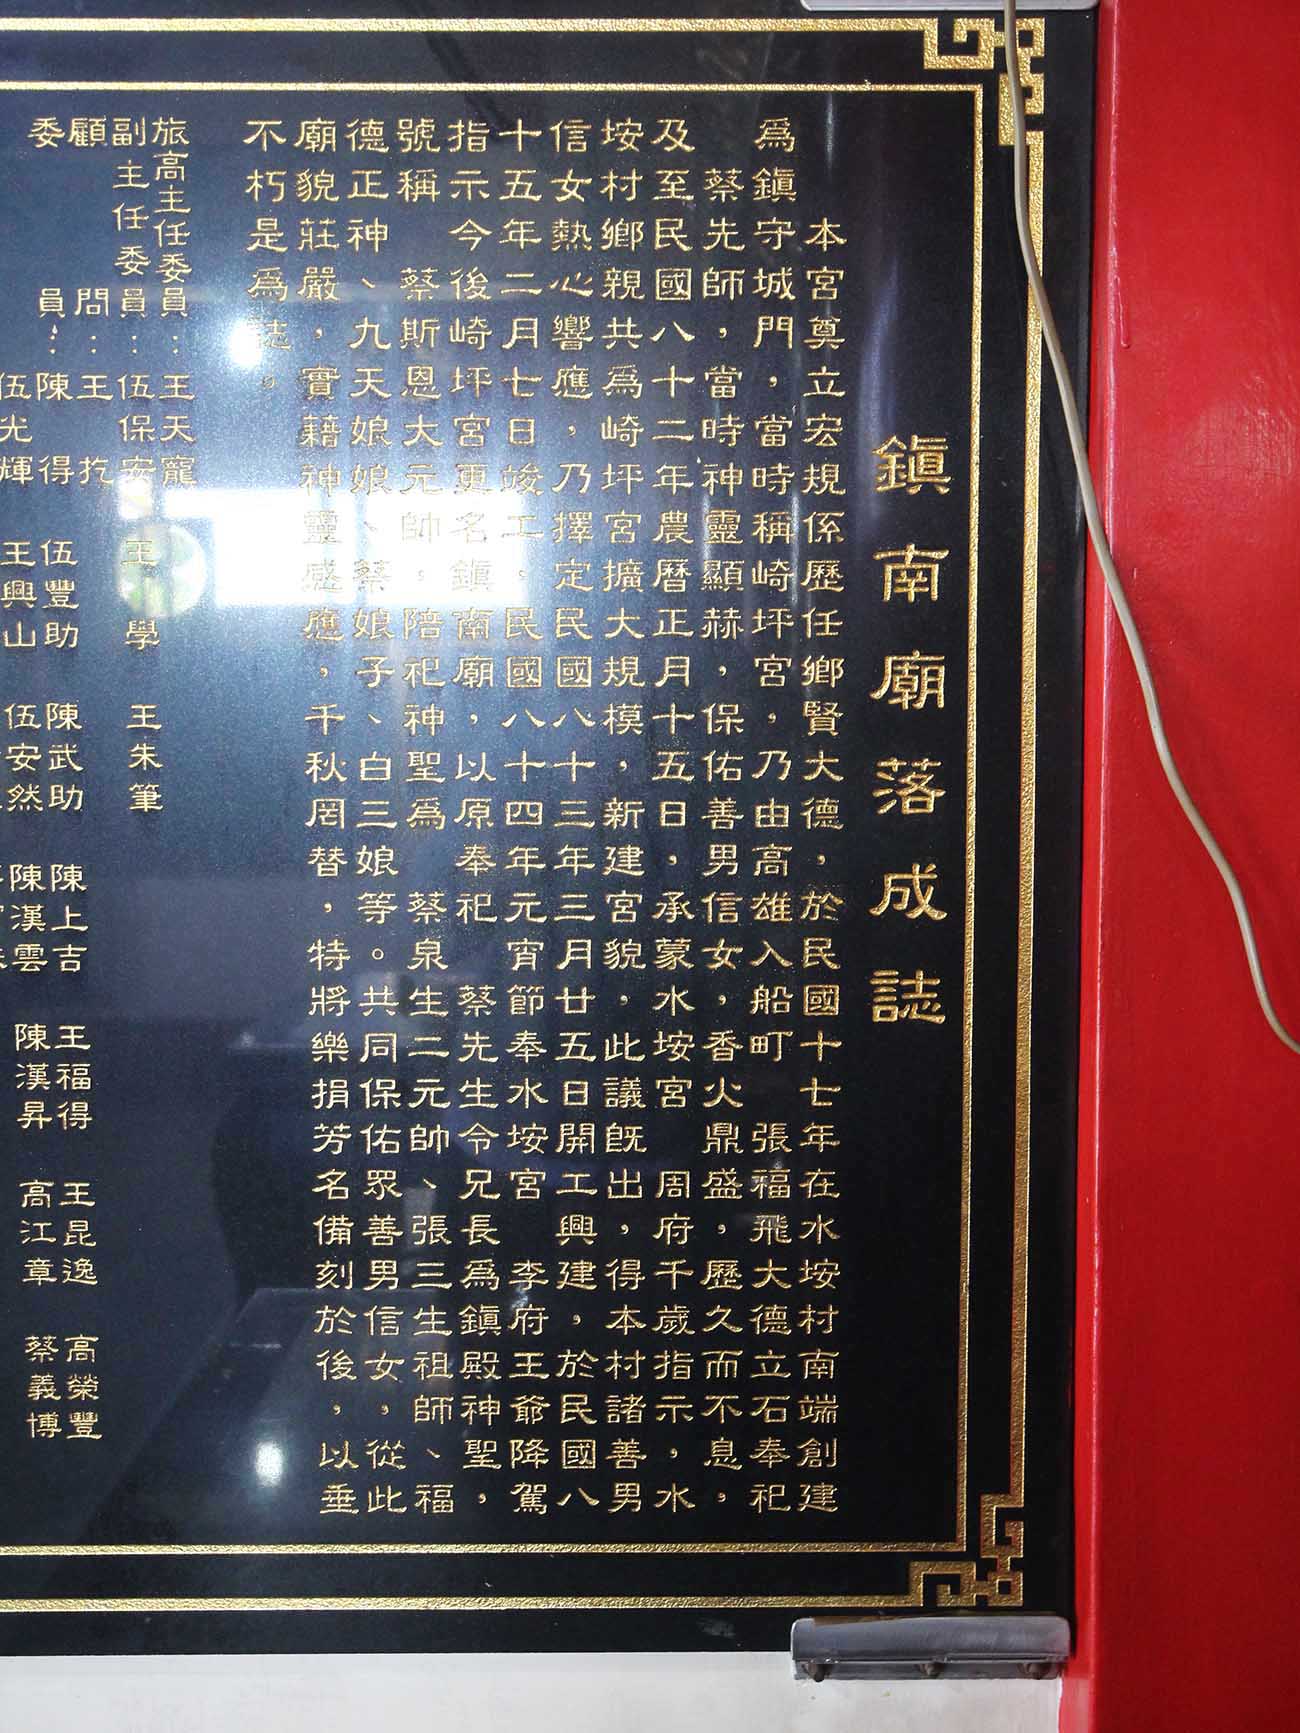 鎮南廟落成誌
本宮奠立宏規係歷任鄉賢大德，於民國十七年在水垵村南端創建
為鎮守城門，當時稱崎坪宮，乃由高雄入船町　張福飛大德立石奉祀
蔡先師，當時神靈顯赫，保佑善男信女，香火鼎盛，歷久而不息，
及至民國八十二年農曆正月十五日，承蒙水垵宮　周府千歲指示，水
垵村鄉親共為崎坪宮擴大規模，新建宮貌，此議既出，得本村諸善男
信女熱心響應，乃擇定民國八十三年三月廿五日開工興建，於民國八
十五年二月七日竣工。民國八十四年元宵節奉水垵宮　李府王爺降駕
指示今後崎坪宮更名鎮南廟，以原奉祀　蔡先生令兄長為鎮殿神聖，
號稱　蔡斯恩大元帥。陪祀神聖為　蔡泉生二元帥、張三生祖師、福
德正神、九天娘娘、蔡娘子、白三娘等。共同保佑眾善男信女，從此
廟貌莊嚴，實藉神靈感應，千秋罔替，特將樂捐芳名備刻於後，以垂
不朽是為誌。
旅高主任委員：王天寵
副主任委員：伍保安　王學　王朱筆
顧問：王扢
委員：陳得　伍豐助　陳武助　陳上吉　王福得　王昆逸　高榮豐
伍光輝　王興山　伍安然　陳漢雲　陳漢昇　高江章　蔡義博